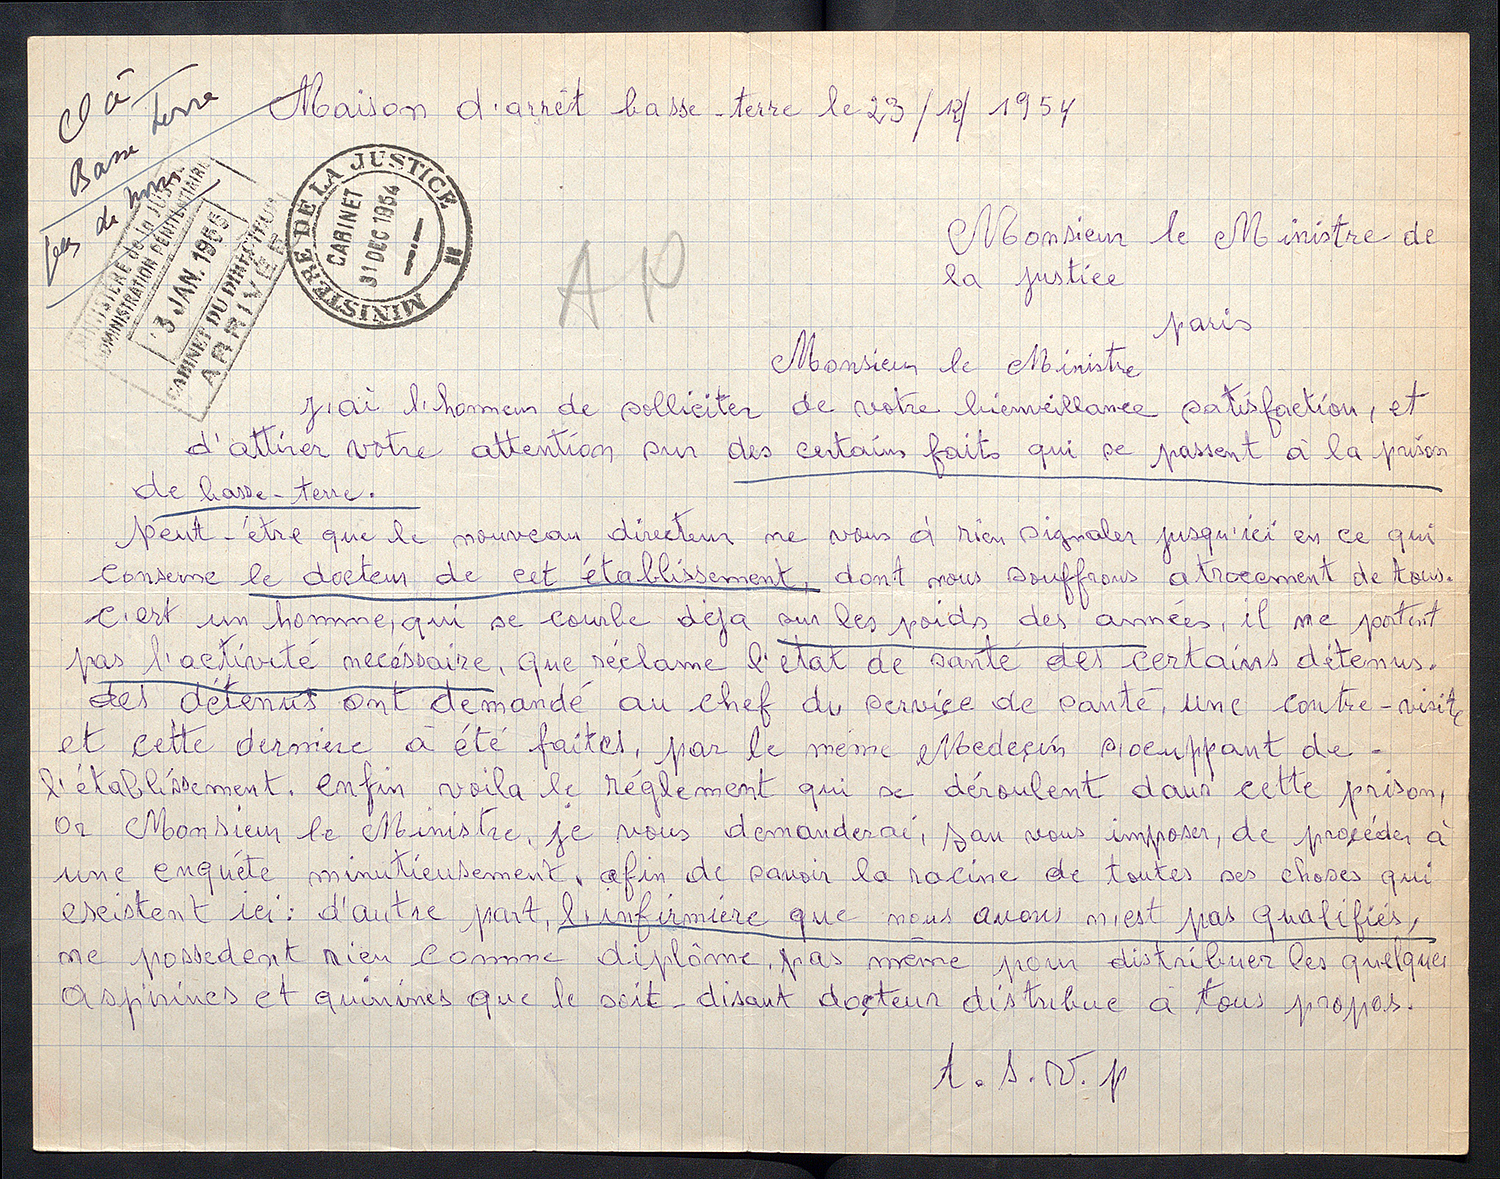 à
Basse terre
pas de
Maison d'arrêt basse-terre le 23/12/1954
MINISTÈRE de la JUSTICE
ADMINISTRATION PÉNITENTIAIRE
3 JAN. 1955
CABINET DU DIRECTEUR
ARRIVÉE
MINISTÈRE DE LA JUSTICE
CABINET
31 DEC 1954
AP
Monsieur le Ministre de
la justice
paris
Monsieur le Ministre
J'ai l'honneur de solliciter de votre bienveillance satisfaction, et
d'attirer votre attention sur des certains faits qui se passent à la prison
de basse-terre.
peut-être que le nouveau directeur ne vous à rien signaler jusqu'ici en ce qui
conserne le docteur de cet établissement, dont nous souffrons atrocement de tous.
c'est un homme, qui se courbe déja sur les poids des années, il ne portent
pas l'activité necéssaire, que réclame l'état de santé des certains détenus.
des détenus ont demandé au chef du service de santé, une contre-visite
et cette dernière à été faites, par le même Medecin s'ocuppant de -
l'établissement. enfin voila le réglement qui se déroulent dans cette prison,
Or Monsieur le Ministre, je vous demanderai, san vous imposer, de procéder à
une enquête minutieusement, afin de savoir la racine de toutes ses choses qui
exeistent ici: d'autre part, l'infirmière que nous avons n'est pas qualifiés,
ne possedent rien comme diplôme, pas même pour distribuer les quelques
aspirines et quinines que le soit-disant docteur distribue à tous propos.
t.s.v.p